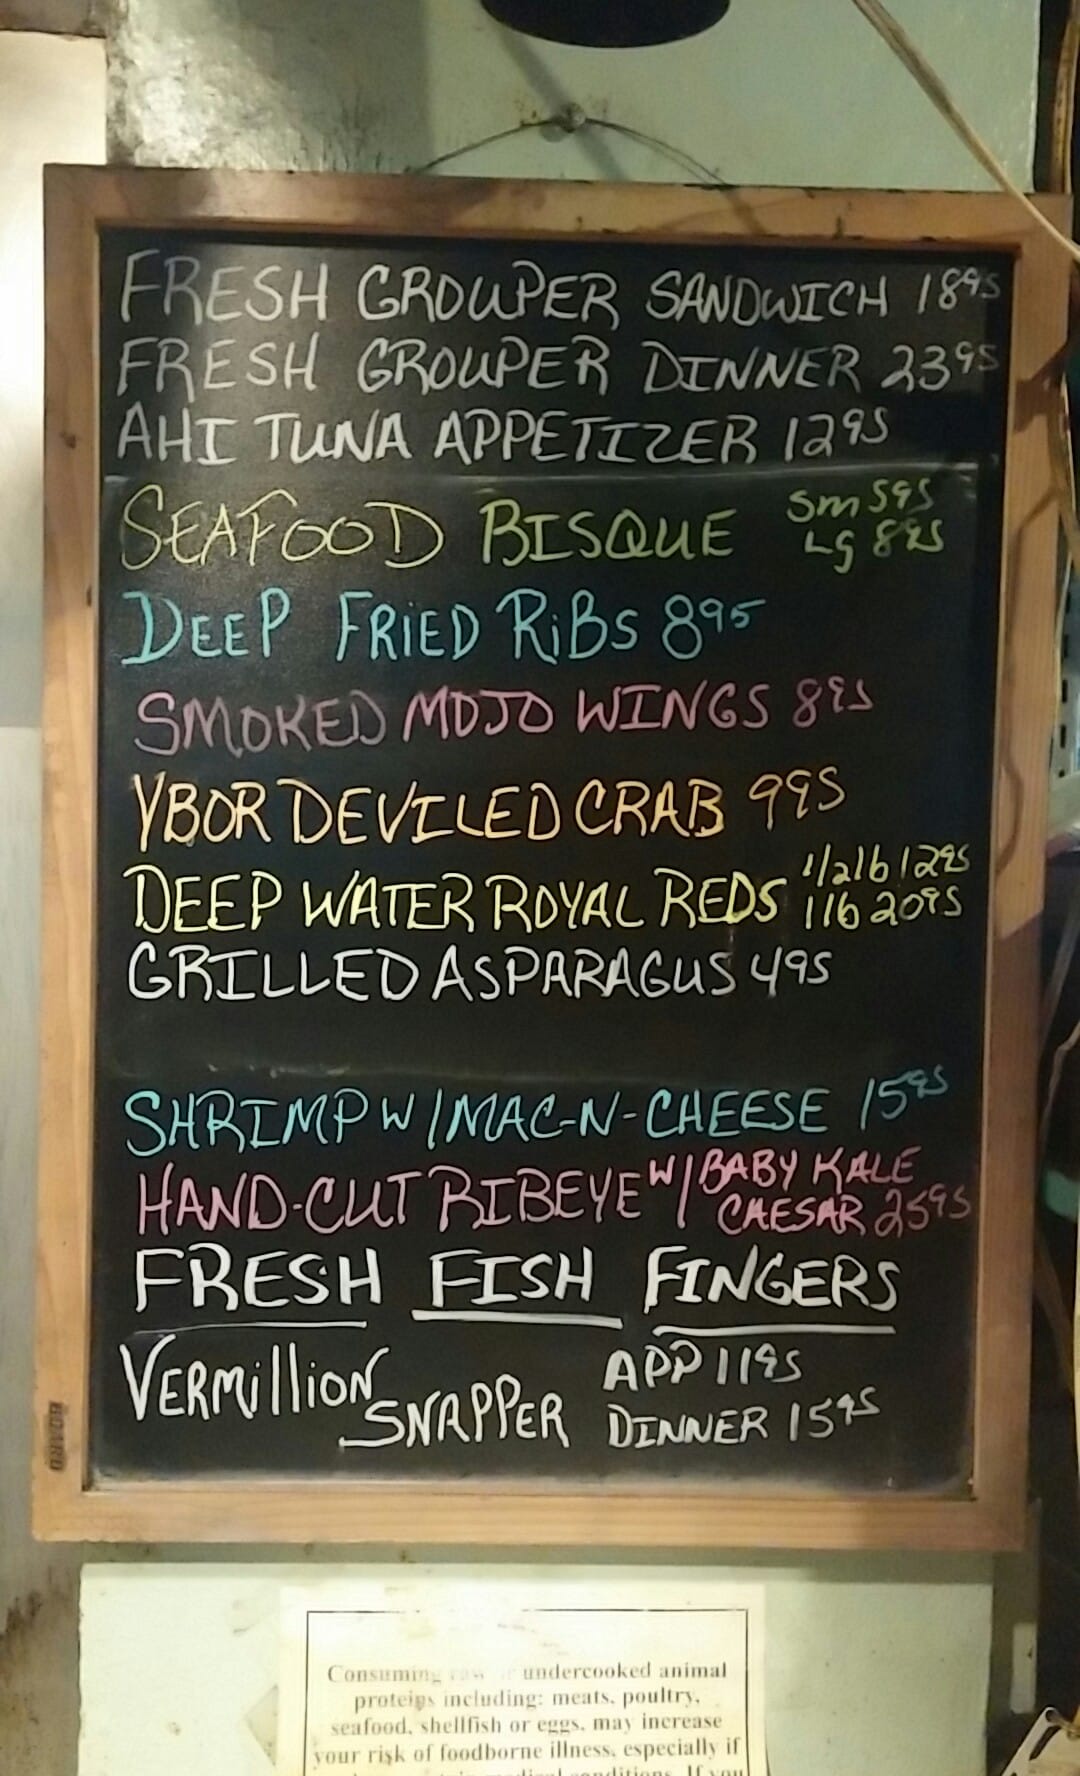 FRESH GROUPER SANDWICH 1895
FRESH GROUPER DINNER 2395
AHI TUNA APPETIZER 1295
SEAFOOD BISQUE Sm 595
Lg 895
DEEP FRIED RiBS 895
SMOKED MOJO WINGS 895
YBOR DEVILED CRAB 995
DEEP WATER ROYAL REDS 1/2lb 1295
1lb 2095
GRILLED ASPARAGUS 495
SHRIMP W/MAC-N-CHEESE 1595
HAND-CUT RIBEYE W/BABY KALE
CAESAR 2595
FRESH FISH FINGERS
VERMillION SNAPPER APP 1195
DINNER 1595
BOARD
Consuming raw or undercooked animal
proteins including: meats, poultry,
seafood, shellfish or eggs, may increase
your risk of foodborne illness, especially if
medical conditions. If you